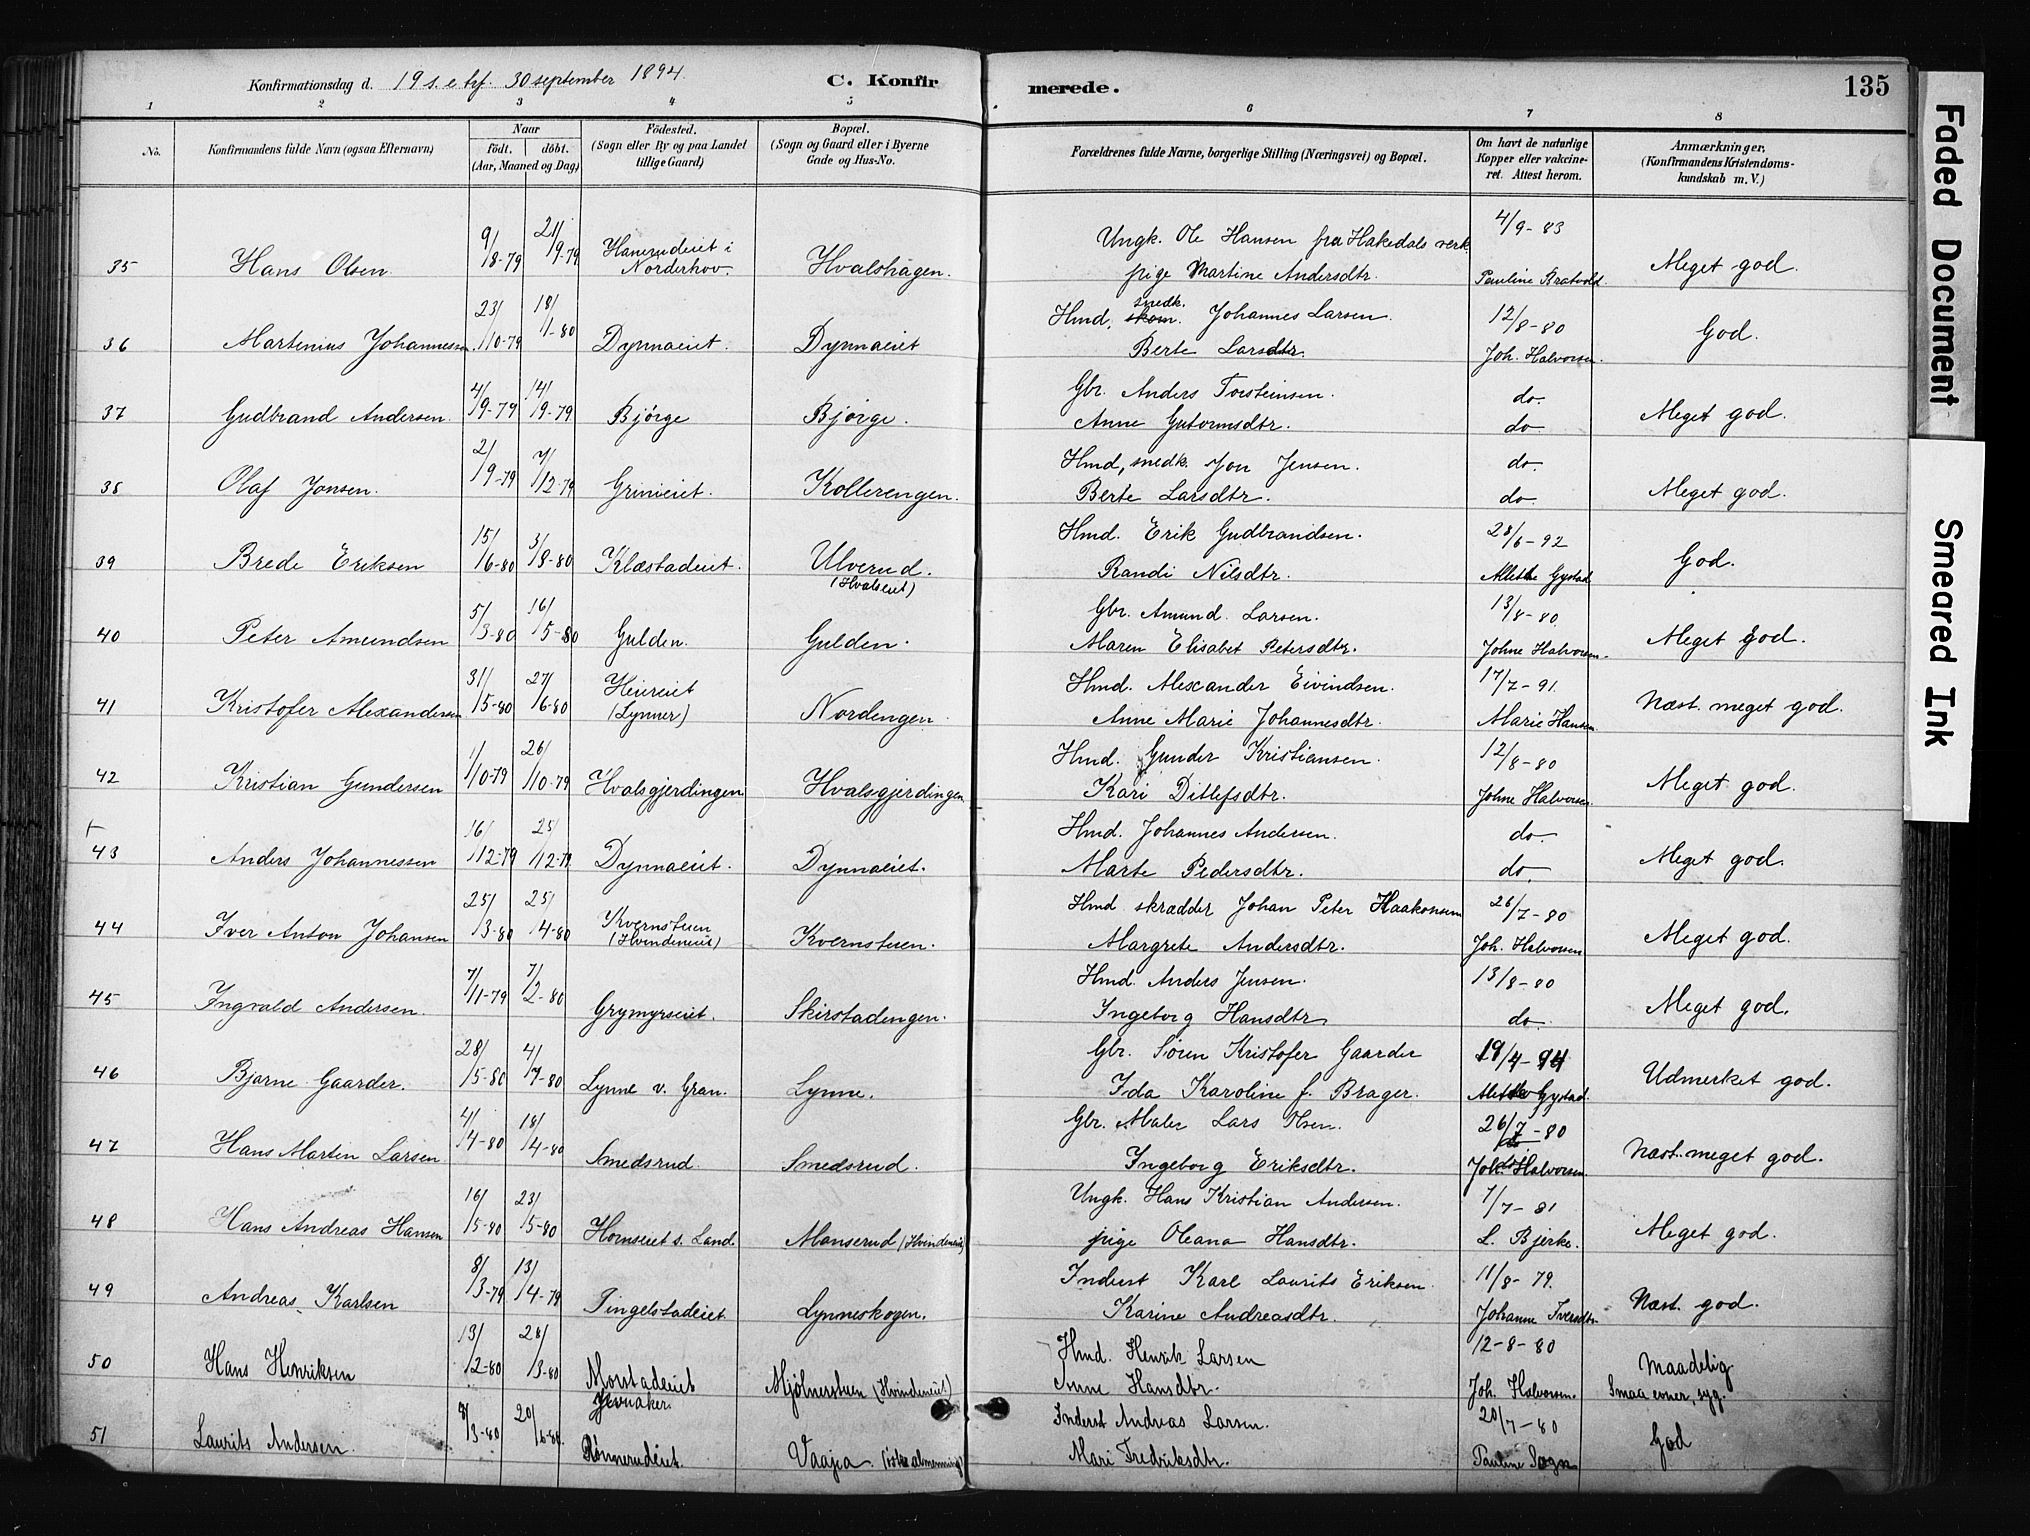 Konfirmationsdag d. 19 s. e. trf. 30 september 1894. C. Konfirmerede. 135
1 2 3 4 5 6 7 8
No. Konfirmandens fulde Navn (ogsaa Efternavn) Naar født. døbt. (Aar, Maaned og Dag) Födested. (Sogn eller By og paa Landet tillige Gaard) Bopæl. (Sogn og Gaard eller i Byerne Gade og Hus-No. Forældrenes fulde Navne, borgerlige Stilling (Næringsvei) og Bopæl. Om havt de naturlige Kopper eller vaccineret. Attest herom. Anmærkninger. (Konfirmandens Kristendomskundskab m. V.)
35 Hans Olsen. 9/8-79 21/9-79 Hanerudeiet i Norderhov. Hvalshagen. Ungk. Ole Hansen fra Hakedals verk 4/9-83 Meget god.
pige Martine Andersdtr. Pauline Bratvold.
36 Martinius Johannessen. 23/10-79 18/1-80 Dynnaeiet. Dynnaeiet Hmd. snedk. skom. Johannes Larsen. 12/8-80 God.
Berte Larsdtr. Joh. Halvorsen.
37 Gudbrand Andersen. 4/9-79 14/9-79 Bjørge Bjørge. Gbr. Anders Torsteinsen. do. Meget god.
Anne Gutormsdtr. do
38 Olaf Jonsen. 2/9-79 7/12-79 Grinieiet. Kollerengen. Hmd, snedk. Jon Jensen. do. Meget god.
Berte Larsdtr. do.
39 Brede Eriksen 15/6-80 3/8-80 Klæstadeiet. Ulverud. (Hvalseiet) Hmd. Erik Gudbrandsen. 28/6-92 God.
Randi Nilsdtr. Alethe Gystad
40 Peter Amundsen 5/3-80 16/5-80 Gulden. Gulden. Gbr. Amund Larsen. 13/8-80 Meget god.
Maren Elisabet Petersdtr. Johne Halvorsen.
41 Kristofer Alexandersen 31/5-80 27/6-80 Heiereiet (Lynner) Nordengen. Hmd. Alexander Eivindsen. 17/7-91. Næst. meget god.
Anne Marie Johannesdtr. Marie Hansen
42 Kristian Gundersen 1/10-79 26/10-79 Hvalsgjerdingen Hvalsgjerdingen Hmd. Gunder Kristiansen. 12/8-80 Meget god.
Kari Ditlefsdtr. Johne Halvorsen.
43 Anders Johannessen 16/12-79 25/12-79 Dynnaeiet. Dynnaeiet. Hmd. Johannes Andersen. do. Meget god.
Marte Pedersdtr. do.
44 Iver Anton Johansen 25/3-80 25/4-80 Kvernstuen (Hvindeneiet) Kvernstuen. Hmd skrædder Johan Peter Haakonsen 26/7-80 Meget god.
Margrete Andersdtr. Joh. Halvorsen
45 Ingvald Andersen. 7/11-79 7/2-80 Grymyrseiet. Skirstadengen. Hmd. Anders Jensen. 13/8-80 Meget god.
Ingeborg Hansdtr. do.
46 Bjarne Gaarder. 28/5-80 4/7-80 Lynne v. Gran. Lynne. Gbr. Søren Kristofer Gaarder 19/4-94 Udmerket god.
Ida Karoline f. Brager. Alethe Gystad.
47 Hans Martin Larsen 4/4-80 18/4-80 Smedsrud. Smedsrud. Gbr. Maler Lars Olsen. 26/7-80 Næst. meget god.
Ingeborg Eriksdtr. Joh. Halvorsen
48 Hans Andreas Hansen 16/5-80 23/5-80 Hornseiet s. Land. Manserud (Hvindeneiet) Ungk. Hans Kristian Andersen. 7/7-81 Meget god.
pige Oleana Hansdtr. L. Bjerke.
49 Andreas Karlsen 8/3-79 13/4-79 Tingelstadeiet. Lynneskogen. Inderst Karl Laurits Eriksen. 11/8-79. Næst. god.
Karine Andreasdtr. Johanne Iversdtr
50 Hans Henriksen 13/2-80 28/3-80 Morstadeiet Jevnaker. Mjölnerstuen (Hvindeneiet) Hmd. Henrik Larsen 12-8-80 Maadelig
Anne Hansdtr. Joh. Halvorsen. Smaa evner, syg.
51 Laurits Andersen. 8/3-80 20/6-80. Rönnerudeiet. Vaajea. Inderst Andreas Larsen. 20/7-80 God
Mari Fredriksdtr. Pauline Sogn
Faded Document
Smeared Ink